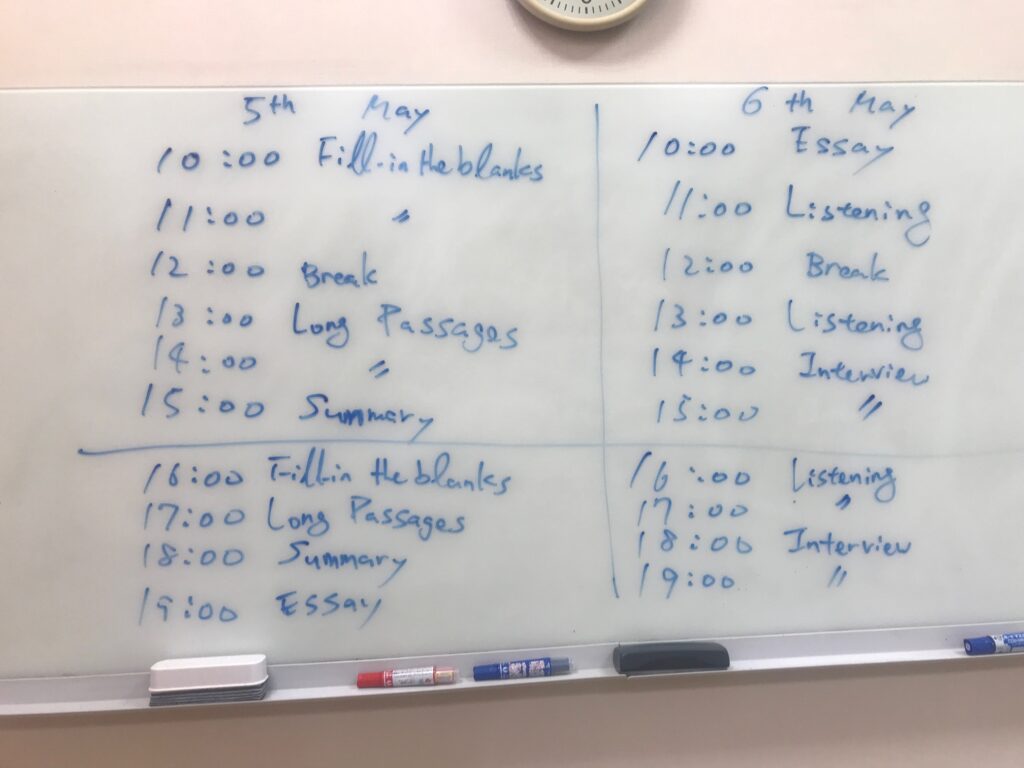 5th May
10:00 Fill-in the blanks
11:00 〃
12:00 Break
13:00 Long Passages
14:00 〃
15:00 Summary
16:00 Fill-in the blanks
17:00 Long Passages
18:00 Summary
19:00 Essay
6th May
10:00 Essay
11:00 Listening
12:00 Break
13:00 Listening
14:00 Interview
15:00 〃
16:00 Listening
17:00 〃
18:00 Interview
19:00 〃